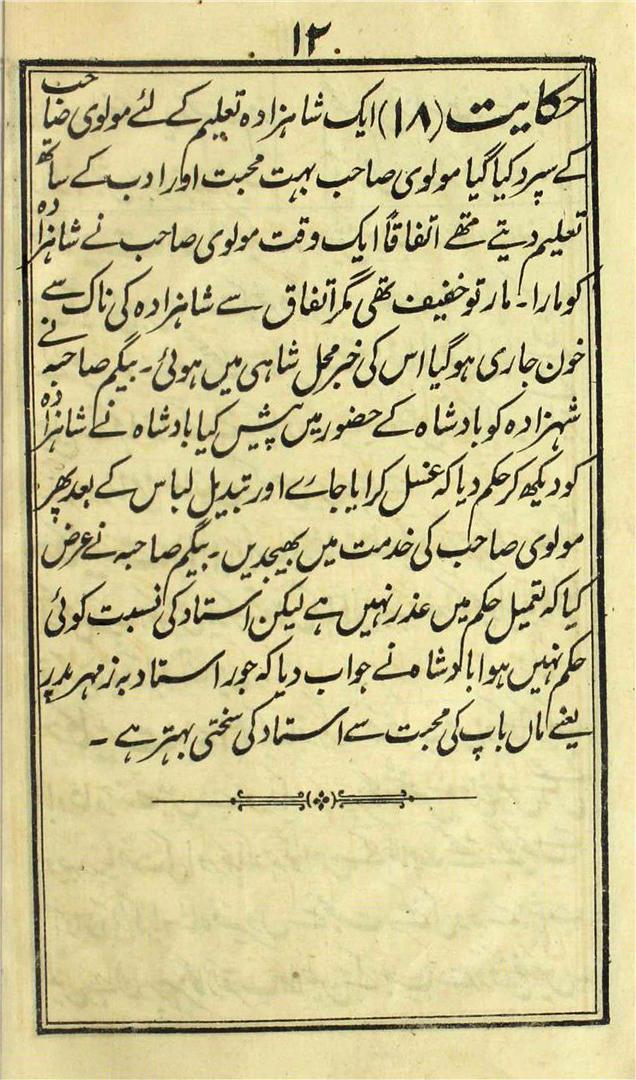 ۱۲
حکایت (۱۸) ایک شاہزادہ تعلیم کے لئے مولوی صاحب
کے سپرد کیا گیا مولوی صاحب بہت محبت اور ادب کے ساتھ
تعلیم دیتے تھے اتفاقاً ایک وقت مولوی صاحب نے شاہزادہ
کو مارا۔ مار تو خفیف تھی مگر اتفاق سے شاہزادہ کی ناک سے
خون جاری ہوگیا اس کی خبر محل شاہی میں ہوئی۔ بیگم صاحبہ نے
شہزادہ کو بادشاہ کے حضور میں پیش کیا بادشاہ نے شاہزادہ
کو دیکھ کر حکم دیا کہ غسل کرایا جاے اور تبدیل لباس کے بعد پھر
مولوی صاحب کی خدمت میں بھیجدیں۔ بیگم صاحبہ نے عرض
کیا کہ تعمیل حکم میں عذر نہیں ہے لیکن استاد کی نسبت کوئی
حکم نہیں ہوا بادشاہ نے جواب دیا کہ جور استاد بہ ز مہر پدر
یعنے ماں باپ کی محبت سے استاد کی سختی بہتر ہے ۔